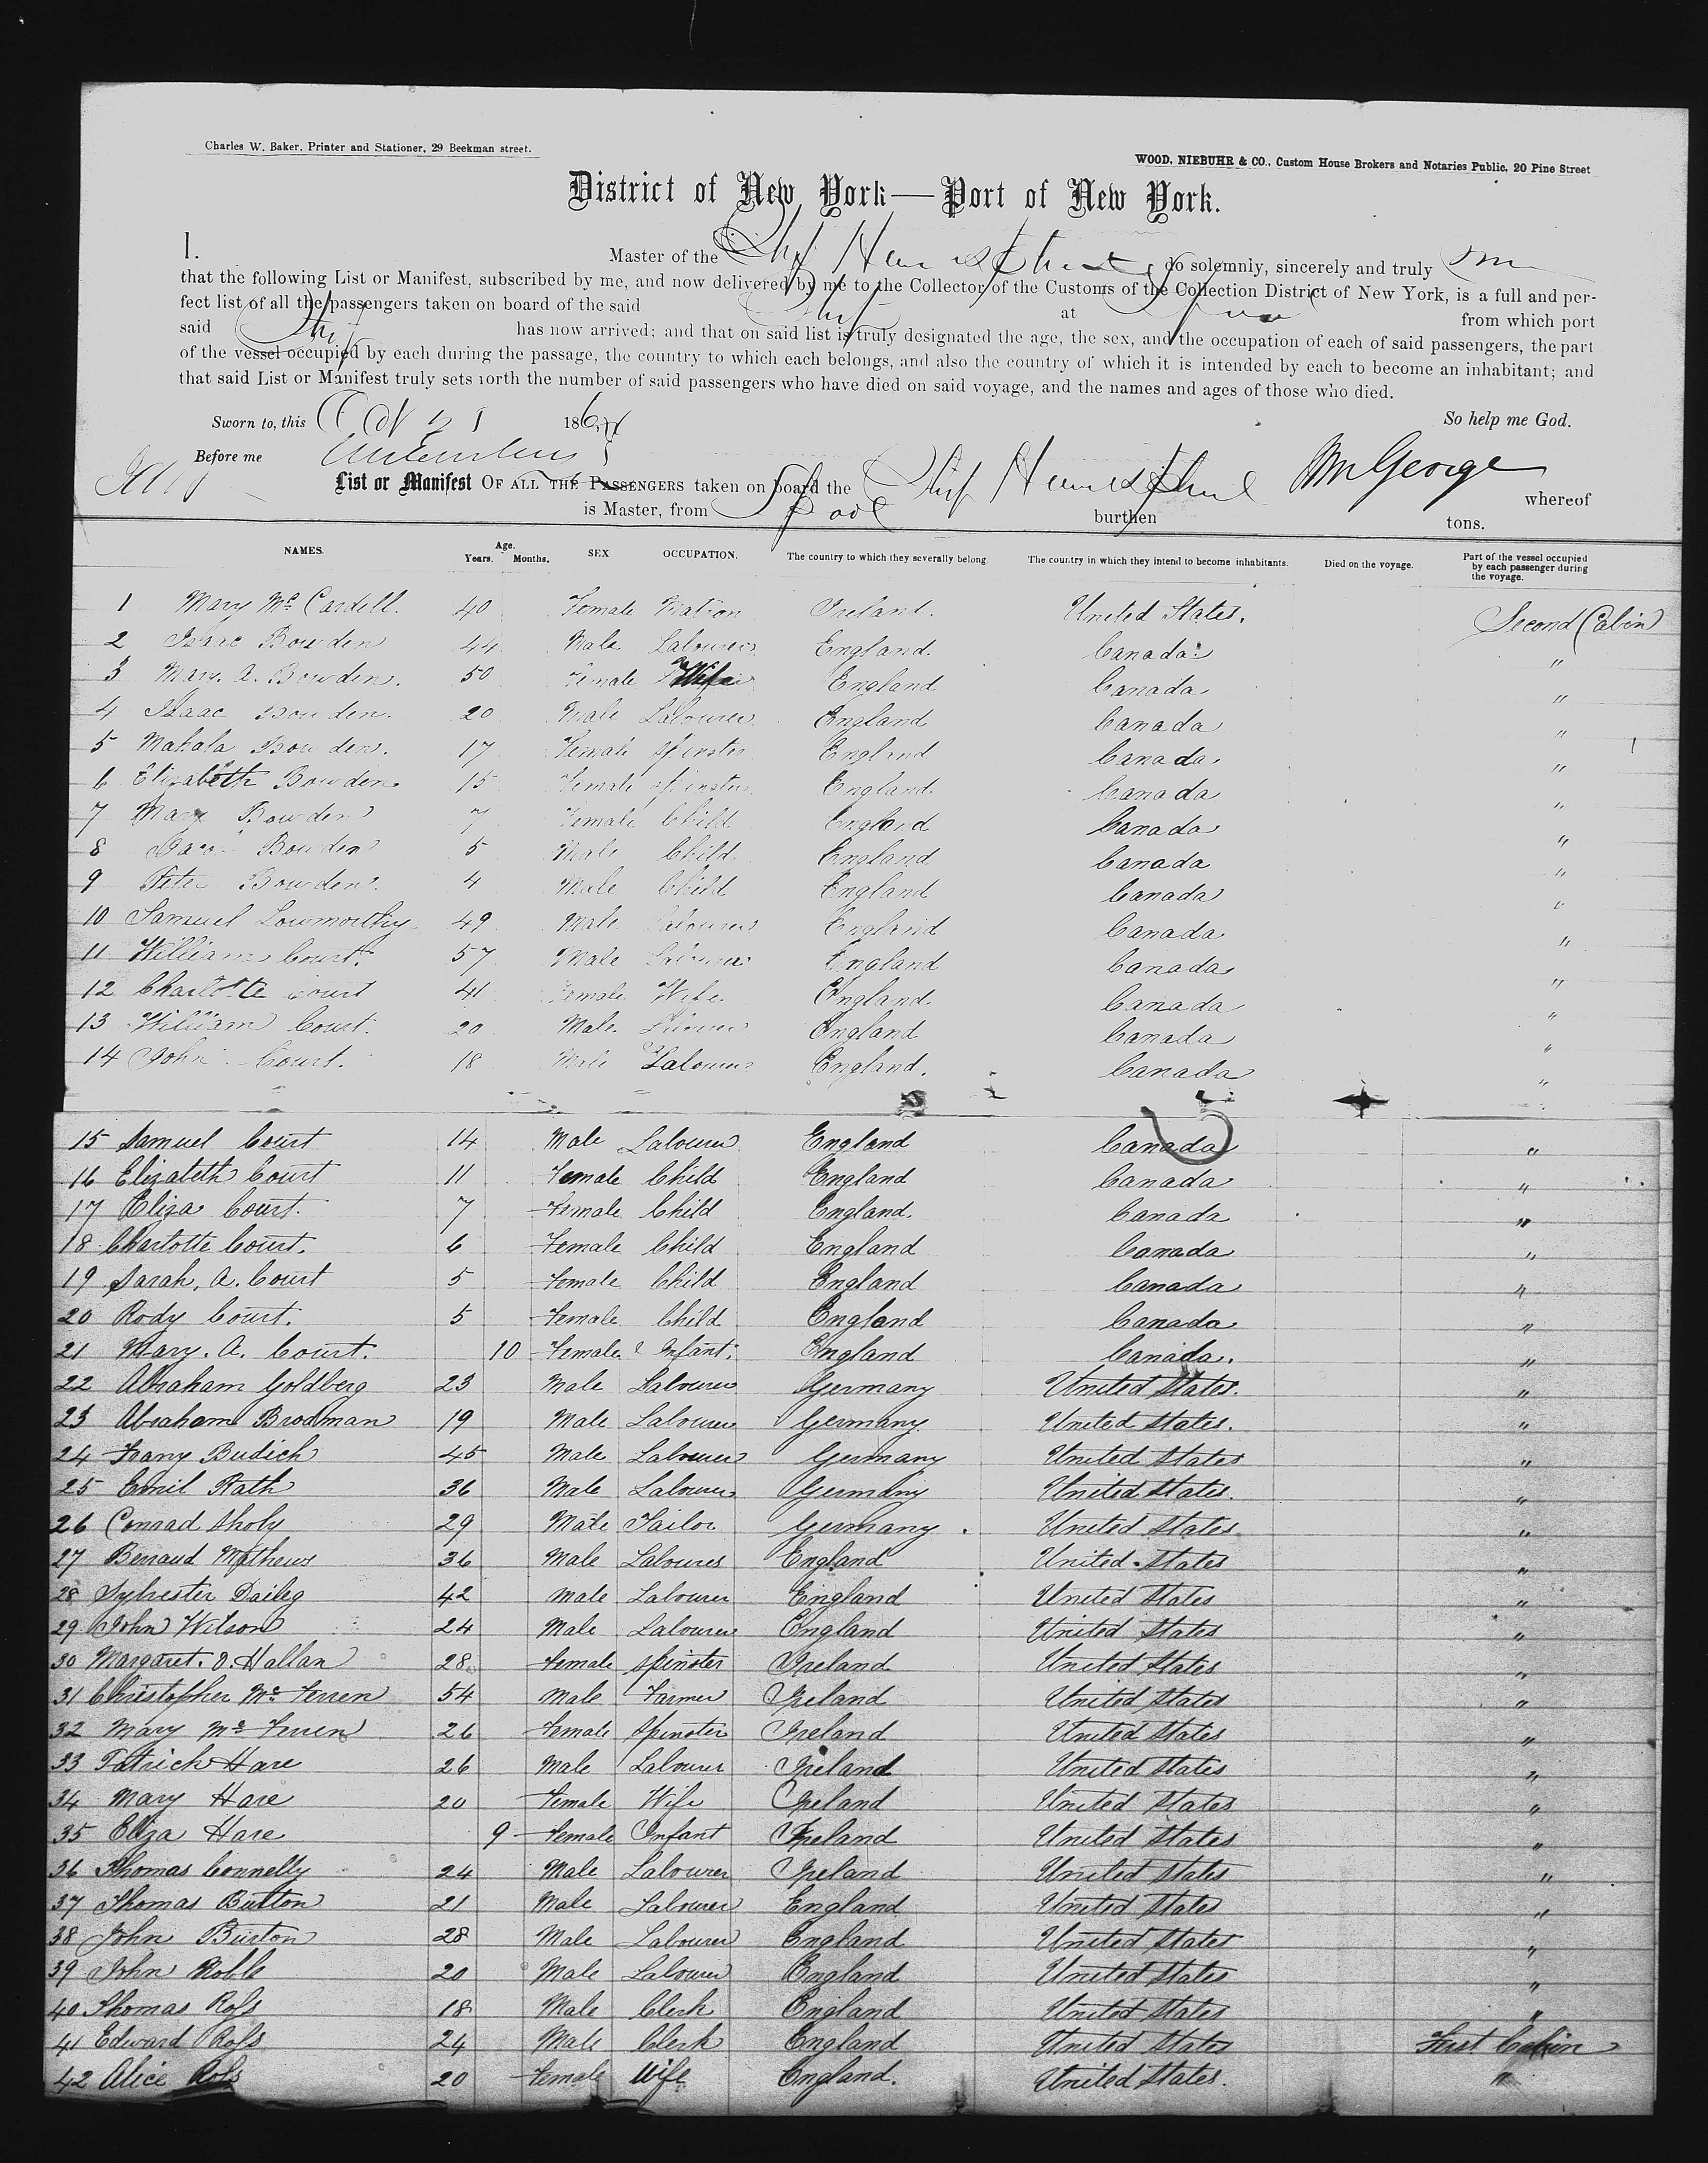 Charles W. Baker, Printer and Stationer, 29 Beekman street.
WOOD, NIEBUHR & CO., Custom House Brokers and Notaries Public, 20 Pine Street
District of New York—Port of New York.
I. Master of the Ship do solemnly, sincerely and truly
that the following List or Manifest, subscribed by me, and now delivered by me to the Collector of the Customs of the Collection District of New York, is a full and per-
fect list of all the passengers taken on board of the said Ship at from which port
said Ship has now arrived; and that on said list is truly designated the age, the sex, and the occupation of each of said passengers, the part
of the vessel occupied by each during the passage, the country to which each belongs, and also the country of which it is intended by each to become an inhabitant; and
that said List or Manifest truly sets forth the number of said passengers who have died on said voyage, and the names and ages of those who died.
Sworn to, this Oct 21 186 So help me God.
Before me
List or Manifest OF ALL THE PASSENGERS taken on board the Ship whereof
Wm George
is Master, from Lpool burthen tons.
NAMES. Age. Years. Months. SEX OCCUPATION. The country to which they severally belong The country in which they intend to become inhabitants. Died on the voyage. Part of the vessel occupied by each passenger during the voyage.
1 Mary Mc Cardell. 40 Female Matron Ireland. United States. Second Cabin
2 Isaac Bowden 44 Male Labourer England. Canada "
3 Mary. A. Bowden. 50 Female Wife England Canada "
4 Isaac Bowden. 20 Male Labourer England Canada "
5 Mahala Bowden. 17 Female Spinster England Canada "
6 Elizabeth Bowden 15 Female Spinster England. Canada "
7 Mary Bowden 7 Female Child England Canada "
8 Bowden 5 Male Child England Canada "
9 Peter Bowden. 4 Male Child England Canada "
10 Samuel Lowmorthy 49 Male Labourer England Canada "
11 William Court. 57 Male Labourer England Canada "
12 Charlotte Court 41 Female Wife England. Canada "
13 William Court. 20 Male Labourer England Canada "
14 John Court. 18 Male Labourer England. Canada "
15 Samuel Court 14 Male Labourer England Canada "
16 Elizabeth Court 11 Female Child England Canada "
17 Eliza Court. 7 Female Child England. Canada "
18 Charlotte Court. 6 Female Child England Canada "
19 Sarah. A. Court 5 Female Child England Canada "
20 Rody Court. 5 Female Child England Canada "
21 Mary. A. Court. 10 Female Infant. England Canada. "
22 Abraham Goldberg 23 Male Labourer Germany United States. "
23 Abraham Brodman 19 Male Labourer Germany. United States. "
24 Frany Budich 45 Male Labourer Germany United States "
25 Emil Rath 36 Male Labourer Germany United States. "
26 Conrad Sholy 29 Male Tailor Germany. United States "
27 Bernard Mathews 36 Male Labourer England United States "
28 Sylvester Daileg 42 Male Labourer England United States "
29 John Wilson 24 Male Labourer England United States "
30 Margaret. O. Hallan 28 Female Spinster Ireland United States "
31 Christopher Mc Ferren 54 Male Farmer Ireland United States "
32 Mary Mc Ferren 26 Female Spinster Ireland United States "
33 Patrick Hare 26 Male Labourer Ireland United States "
34 Mary Hare 20 Female Wife Ireland United States "
35 Eliza Hare 9 Female Infant Ireland United States "
36 Thomas Connelly 24 Male Labourer Ireland United States "
37 Thomas Button 21 Male Labourer England United States "
38 John Burton 28 Male Labourer England United States "
39 John Robb 20 Male Labourer England United States "
40 Thomas Ross 18 Male Clerk England United States "
41 Edward Ross 24 Male Clerk England United States First Cabin
42 Alice Ross 20 Female Wife England. United States. "